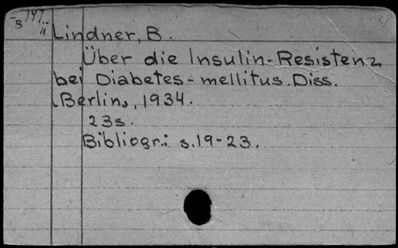 Lindner, B.
Über die Insulin-Resistenz
bei Diabetes-mellitus. Diss.
Berlin, 1934.
23s.
Bibliogr.: s.19-23.